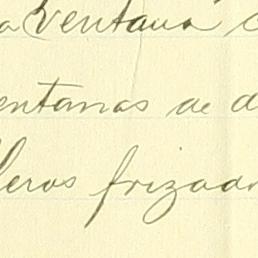 a ventana c
entanas de d
leros frizad